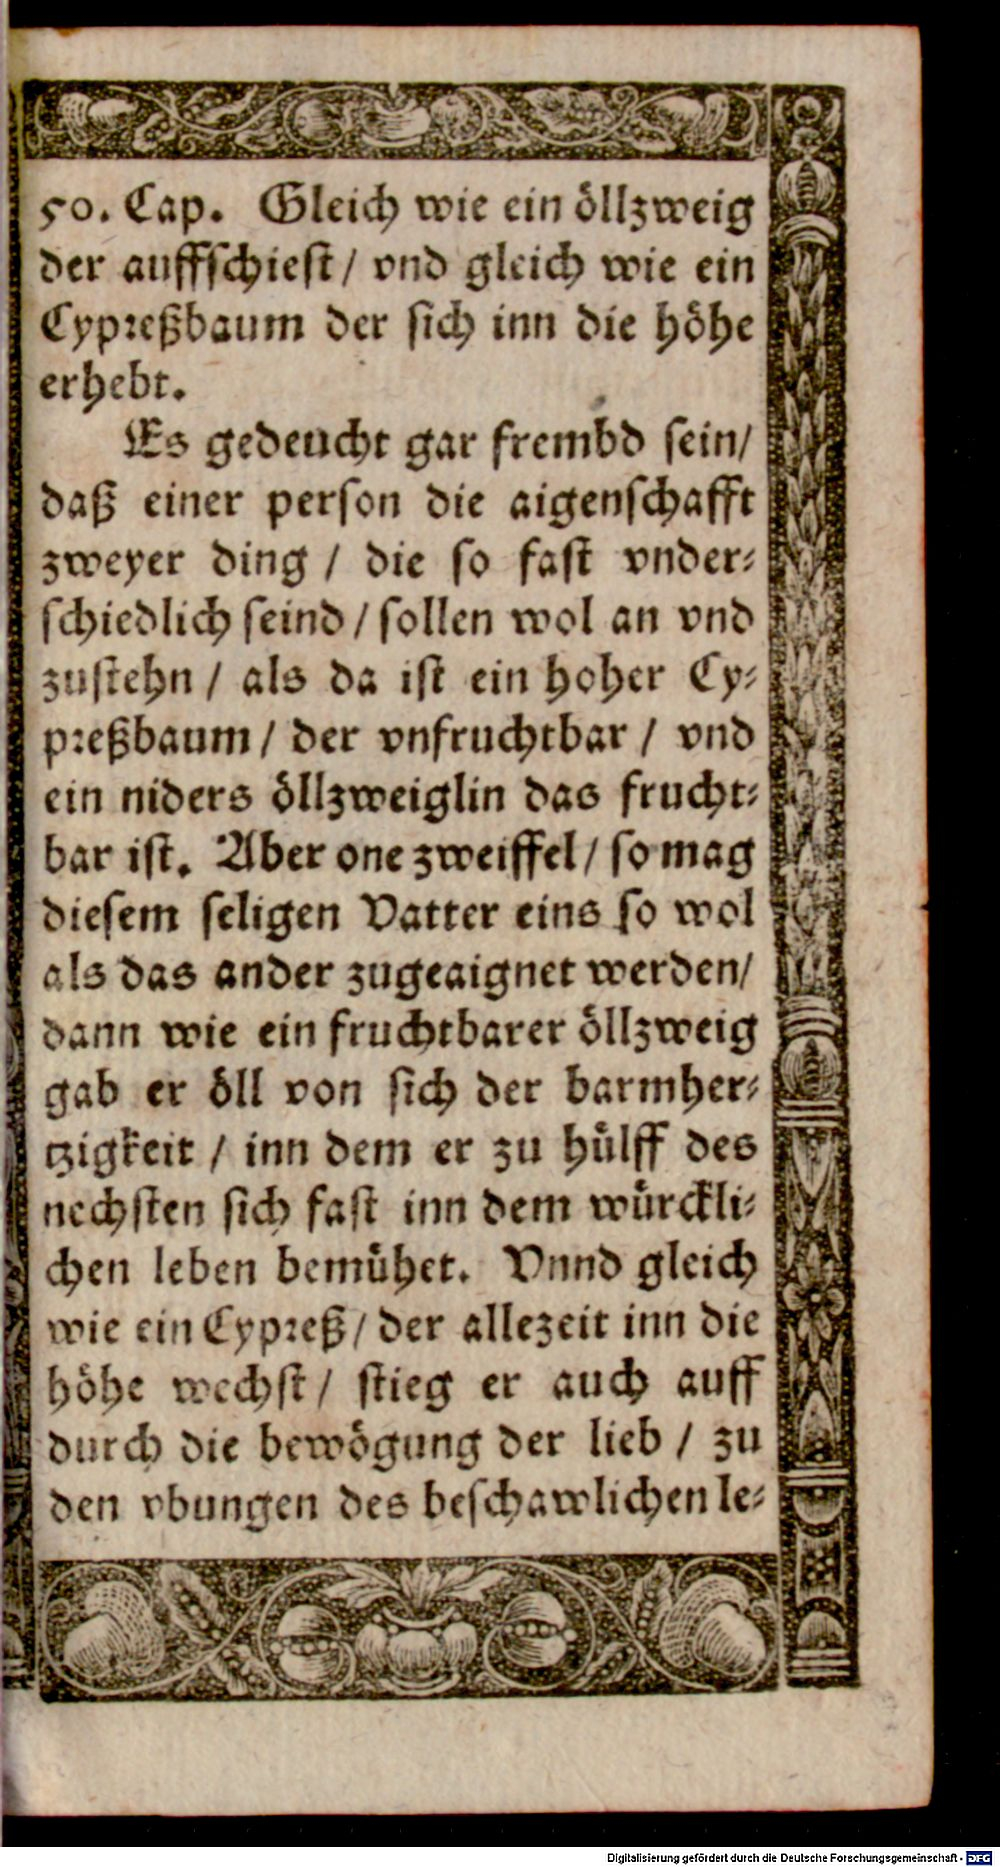 50. Cap. Gleich wie ein öllzweig
der auffschiest / vnd gleich wie ein
Cypreßbaum der sich inn die höhe
erhebt.
Es gedeucht gar frembd sein /
daß einer person die aigenschafft
zweyer ding / die so fast vnder⸗
schiedlich seind / sollen wol an vnd
zustehn / als da ist ein hoher Cy⸗
preßbaum / der vnfruchtbar / vnd
ein niders öllzweiglin das frucht⸗
bar ist. Aber one zweiffel / so mag
diesem seligen Vatter eins so wol
als das ander zugeaignet werden /
dann wie ein fruchtbarer öllzweig
gab er öll von sich der barmher⸗
tzigkeit / inn dem er zu hülff des
nechsten sich fast inn dem würckli⸗
chen leben bemühet. Vnnd gleich
wie ein Cypreß / der allezeit inn die
höhe wechst / stieg er auch auff
durch die bewögung der lieb / zu
den vbungen des beschawlichen le⸗
Digitalisierung gefördert durch die Deutsche Forschungsgemeinschaft - DFG